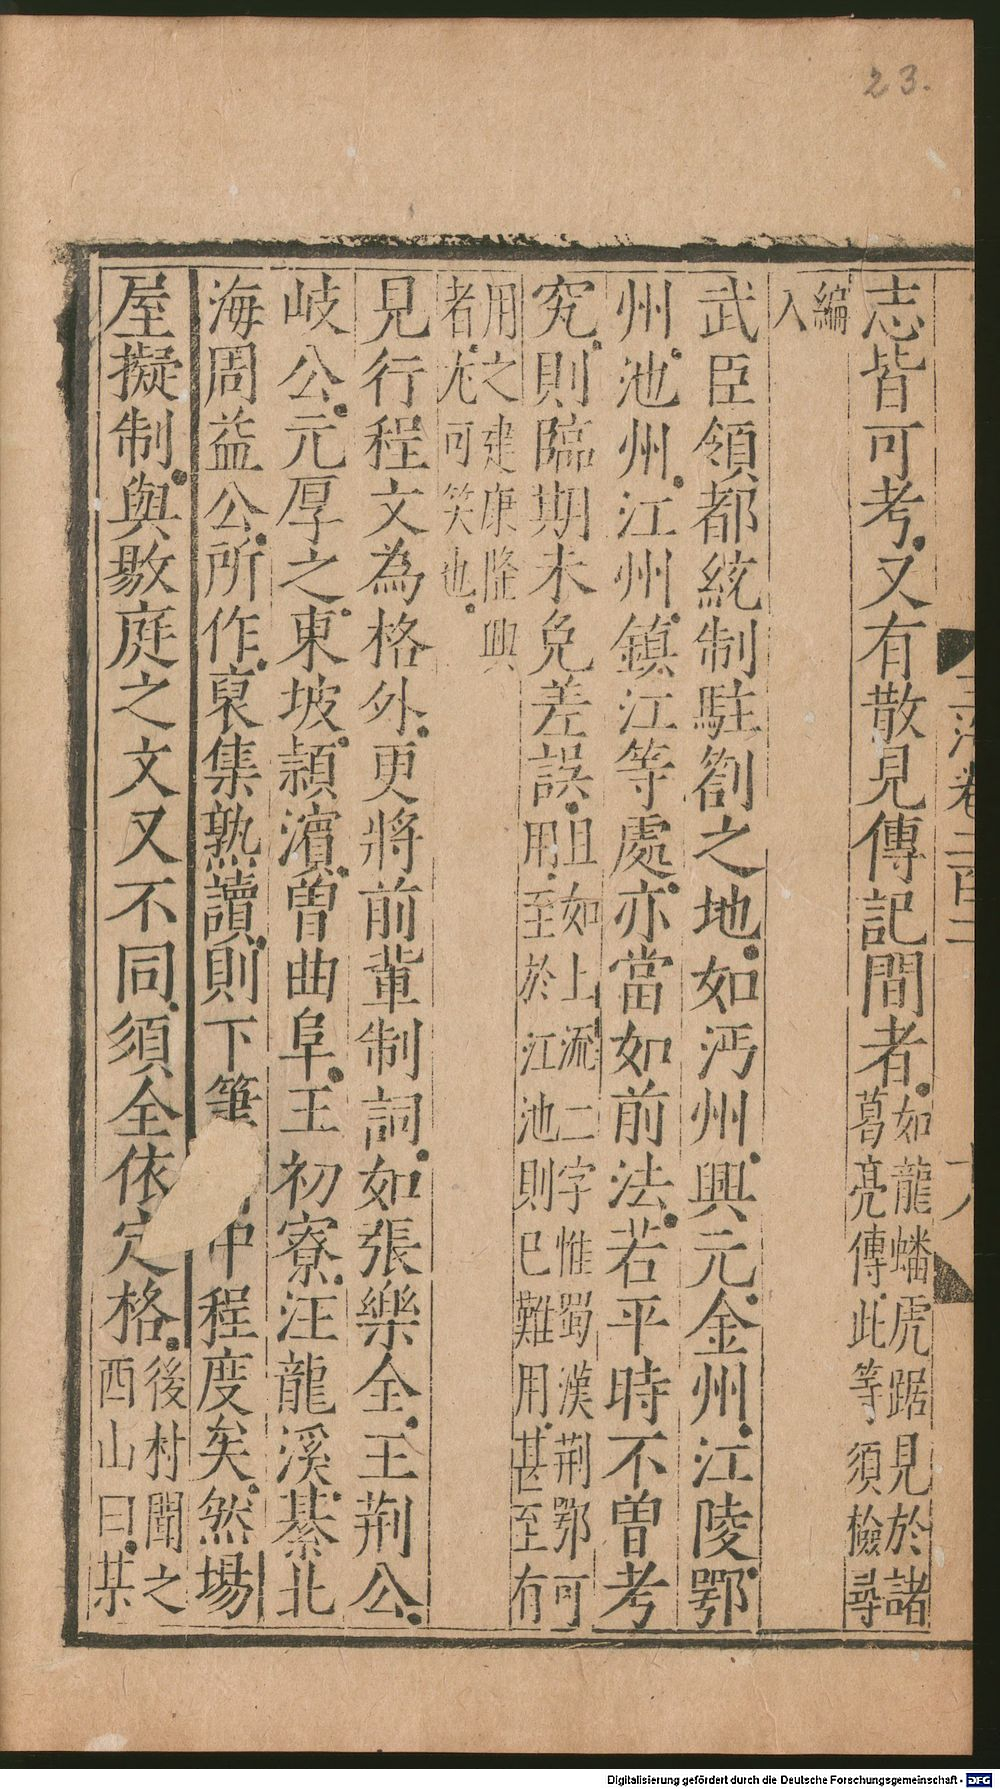 23.
玉海卷二百二
志皆可考又有散見傳記間者如龍蟠虎踞見於諸
葛亮傳此等須檢尋
編
入
武臣領都統制駐劄之地如沔州興元金州江陵鄂
州池州江州鎮江等處亦當如前法若平時不曽考
究則臨期未免差誤且如上流二字惟蜀漢荆鄂可
用至於江池則已難用甚至有
用之建康隆興
者尤可笑也
見行程文為格外更將前輩制詞如張樂全王荆公
岐公元厚之東坡潁濵曽曲阜王初寮汪龍溪綦北
海周益公所作裒集熟讀則下筆中程度矣然塲
屋擬制與敭庭之文又不同須全依定格後村聞之
西山曰某
Digitalisierung gefördert durch die Deutsche Forschungsgemeinschaft - DFG